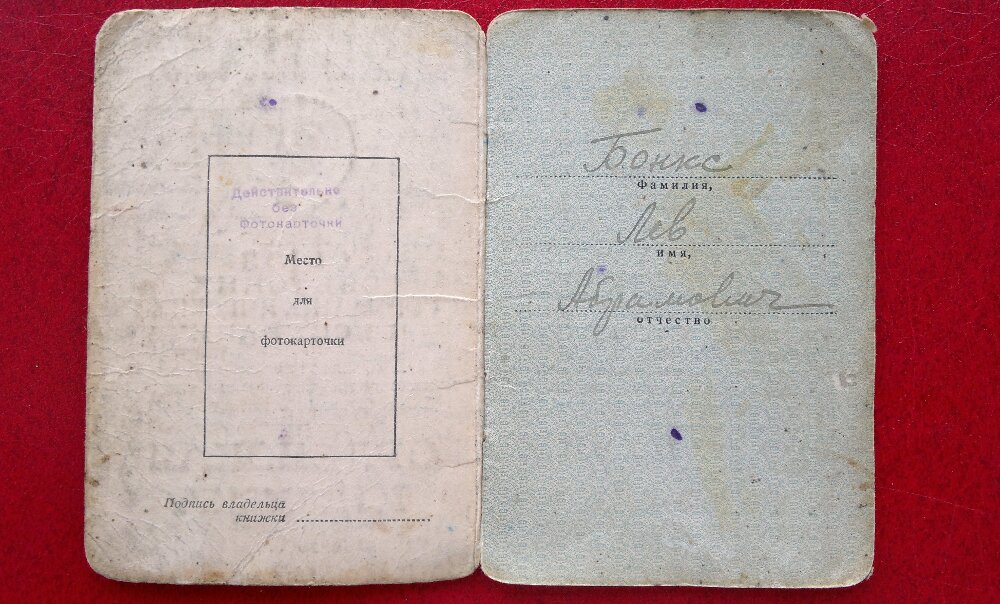 Действительно
без
фотокарточки
Место
для
фотокарточки
Подпись владельца
книжки
Бонкс
фамилия,
Лев
имя,
Абрамович
отчество